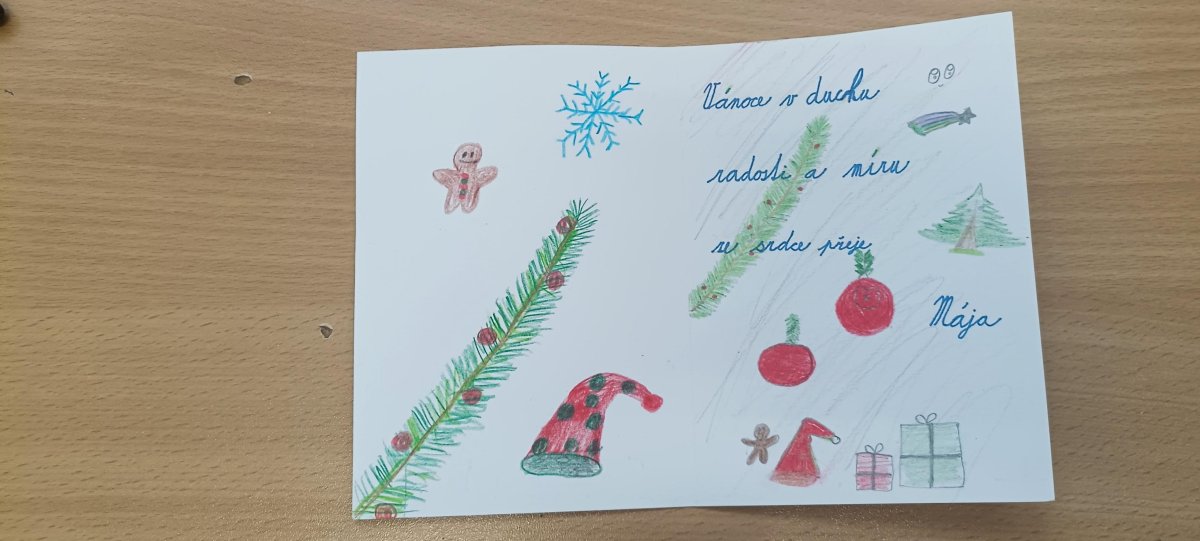 Vánoce v duchu
radosti a míru
ze srdce přeje
Mája